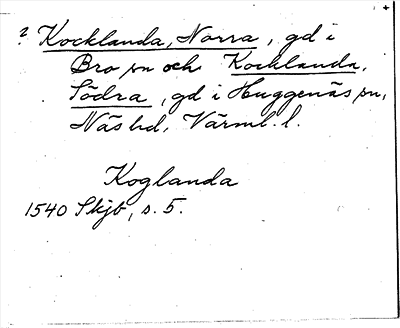 ? Kocklanda, Norra, gd i
Bro sn och Kocklanda,
Södra, gd i Huggenäs sn,
Näs hd, Värml. l.
Koglanda
1540 Skjb, s. 5.